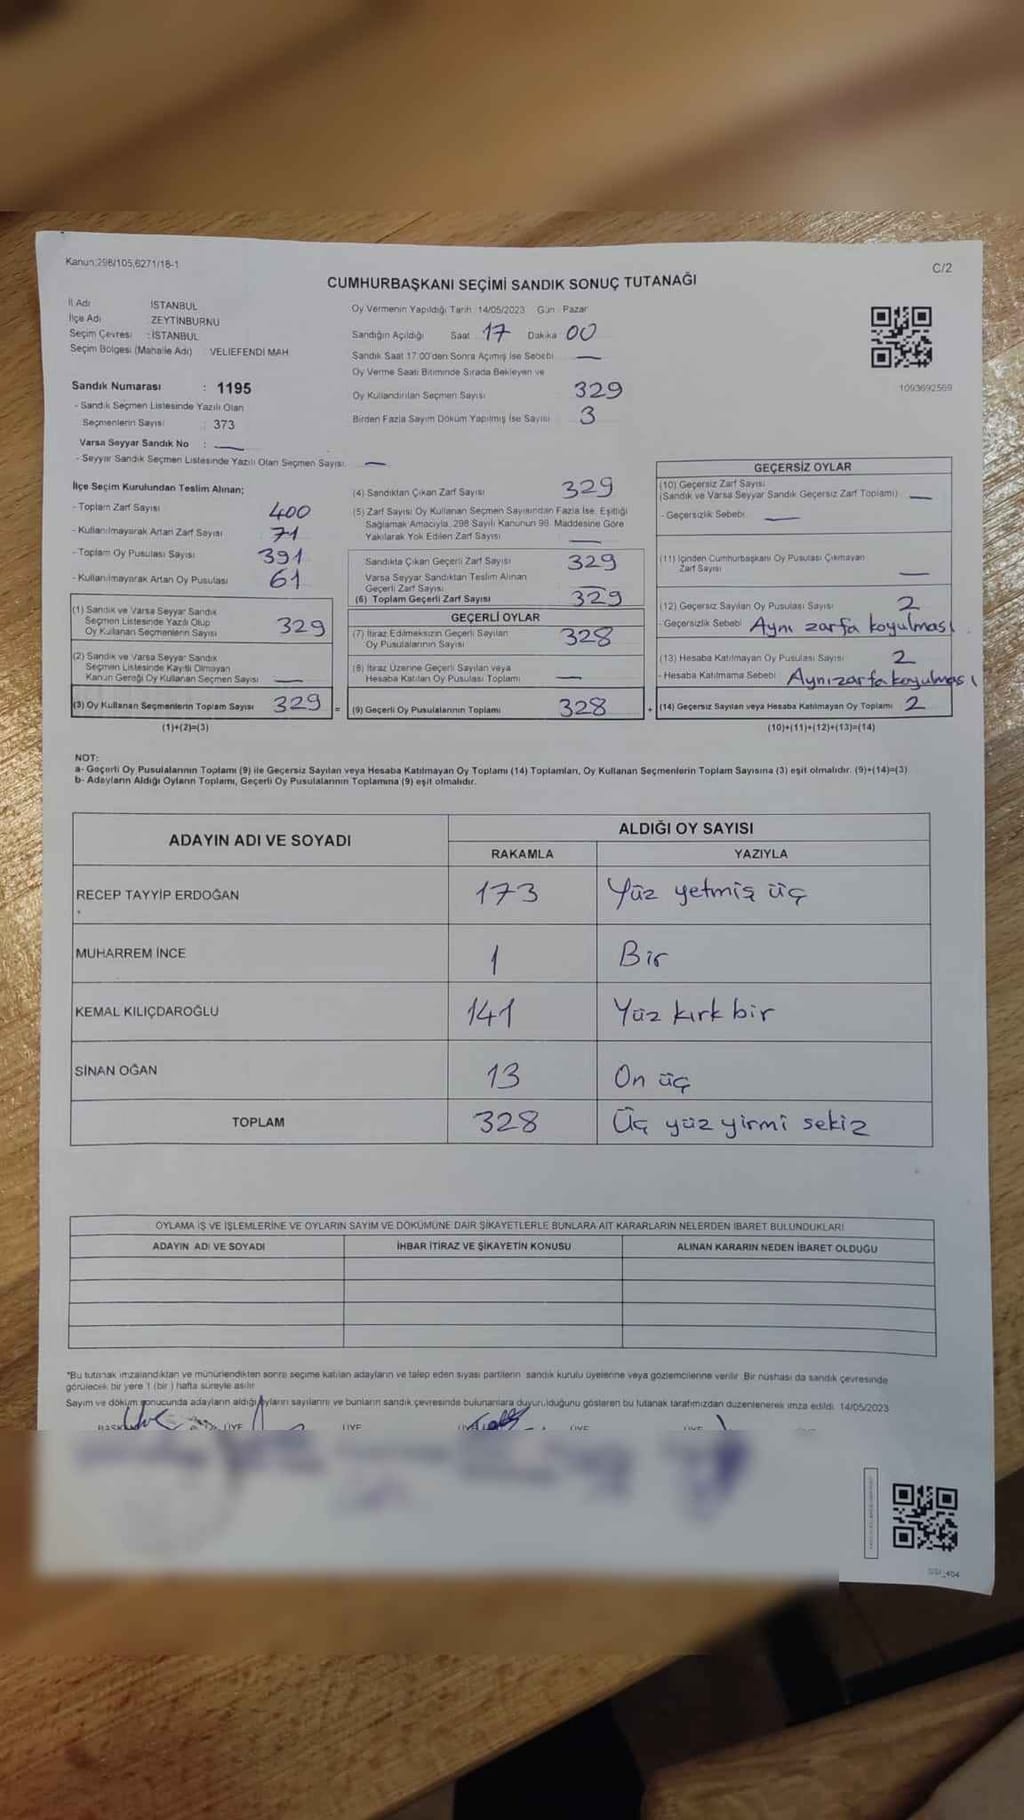 Kanun:298/105,6271/18-1
C/2
CUMHURBAŞKANI SEÇİMİ SANDIK SONUÇ TUTANAĞI
İl Adı İSTANBUL
İlçe Adı ZEYTİNBURNU
Seçim Çevresi : İSTANBUL
Seçim Bölgesi (Mahalle Adı) : VELİEFENDİ MAH.
Sandık Numarası : 1195
- Sandık Seçmen Listesinde Yazılı Olan
Seçmenlerin Sayısı : 373
Varsa Seyyar Sandık No : —
- Seyyar Sandık Seçmen Listesinde Yazılı Olan Seçmen Sayısı: —
Oy Vermenin Yapıldığı Tarih : 14/05/2023 Gün : Pazar
Sandığın Açıldığı Saat 17 Dakika 00
Sandık Saat 17:00'den Sonra Açımış İse Sebebi —
Oy Verme Saati Bitiminde Sırada Bekleyen ve
Oy Kullandırılan Seçmen Sayısı 329
Birden Fazla Sayım Döküm Yapılmış İse Sayısı 3
1093692569
İlçe Seçim Kurulundan Teslim Alınan;
- Toplam Zarf Sayısı 400
- Kullanılmayarak Artan Zarf Sayısı 71
- Toplam Oy Pusulası Sayısı 391
- Kullanılmayarak Artan Oy Pusulası 61
(1) Sandık ve Varsa Seyyar Sandık
Seçmen Listesinde Yazılı Olup
Oy Kullanan Seçmenlerin Sayısı 329
(2) Sandık ve Varsa Seyyar Sandık
Seçmen Listesinde Kayıtlı Olmayan
Kanun Gereği Oy Kullanan Seçmen Sayısı —
(3) Oy Kullanan Seçmenlerin Toplam Sayısı 329 =
(1)+(2)=(3)
(4) Sandıktan Çıkan Zarf Sayısı 329
(5) Zarf Sayısı Oy Kullanan Seçmen Sayısından Fazla İse, Eşitliği
Sağlamak Amacıyla, 298 Sayılı Kanunun 98. Maddesine Göre
Yakılarak Yok Edilen Zarf Sayısı —
Sandıkta Çıkan Geçerli Zarf Sayısı 329
Varsa Seyyar Sandıktan Teslim Alınan
Geçerli Zarf Sayısı
(6) Toplam Geçerli Zarf Sayısı 329
GEÇERLİ OYLAR
(7) İtiraz Edilmeksizin Geçerli Sayılan
Oy Pusulalarının Sayısı 328
(8) İtiraz Üzerine Geçerli Sayılan veya
Hesaba Katılan Oy Pusulası Toplamı —
(9) Geçerli Oy Pusulalarının Toplamı 328 +
GEÇERSİZ OYLAR
(10) Geçersiz Zarf Sayısı
(Sandık ve Varsa Seyyar Sandık Geçersiz Zarf Toplamı) —
- Geçersizlik Sebebi —
(11) İçinden Cumhurbaşkanı Oy Pusulası Çıkmayan
Zarf Sayısı —
(12) Geçersiz Sayılan Oy Pusulası Sayısı 2
- Geçersizlik Sebebi Aynı zarfa koyulması
(13) Hesaba Katılmayan Oy Pusulası Sayısı 2
- Hesaba Katılmama Sebebi Aynı zarfa koyulması
(14) Geçersiz Sayılan veya Hesaba Katılmayan Oy Toplamı 2
(10)+(11)+(12)+(13)=(14)
NOT:
a- Geçerli Oy Pusulalarının Toplamı (9) ile Geçersiz Sayılan veya Hesaba Katılmayan Oy Toplamı (14) Toplamları, Oy Kullanan Seçmenlerin Toplam Sayısına (3) eşit olmalıdır. (9)+(14)=(3)
b- Adayların Aldığı Oyların Toplamı, Geçerli Oy Pusulalarının Toplamına (9) eşit olmalıdır.
ADAYIN ADI VE SOYADI
ALDIĞI OY SAYISI
RAKAMLA YAZIYLA
RECEP TAYYİP ERDOĞAN 173 Yüz yetmiş üç
MUHARREM İNCE 1 Bir
KEMAL KILIÇDAROĞLU 141 Yüz kırk bir
SİNAN OĞAN 13 On üç
TOPLAM 328 Üç yüz yirmi sekiz
OYLAMA İŞ VE İŞLEMLERİNE VE OYLARIN SAYIM VE DÖKÜMÜNE DAİR ŞİKAYETLERLE BUNLARA AİT KARARLARIN NELERDEN İBARET BULUNDUKLARI
ADAYIN ADI VE SOYADI İHBAR İTİRAZ VE ŞİKAYETİN KONUSU ALINAN KARARIN NEDEN İBARET OLDUĞU
*Bu tutanak imzalandıktan ve mühürlendikten sonra seçime katılan adayların ve talep eden siyasi partilerin sandık kurulu üyelerine veya gözlemcilerine verilir. Bir nüshası da sandık çevresinde
görülecek bir yere 1 (bir) hafta süreyle asılır.
Sayım ve döküm sonucunda adayların aldığı oyların sayılarını ve bunların sandık çevresinde bulunanlara duyurulduğunu gösteren bu tutanak tarafımızdan düzenlenerek imza edildi. 14/05/2023
ÜYE ÜYE ÜYE ÜYE